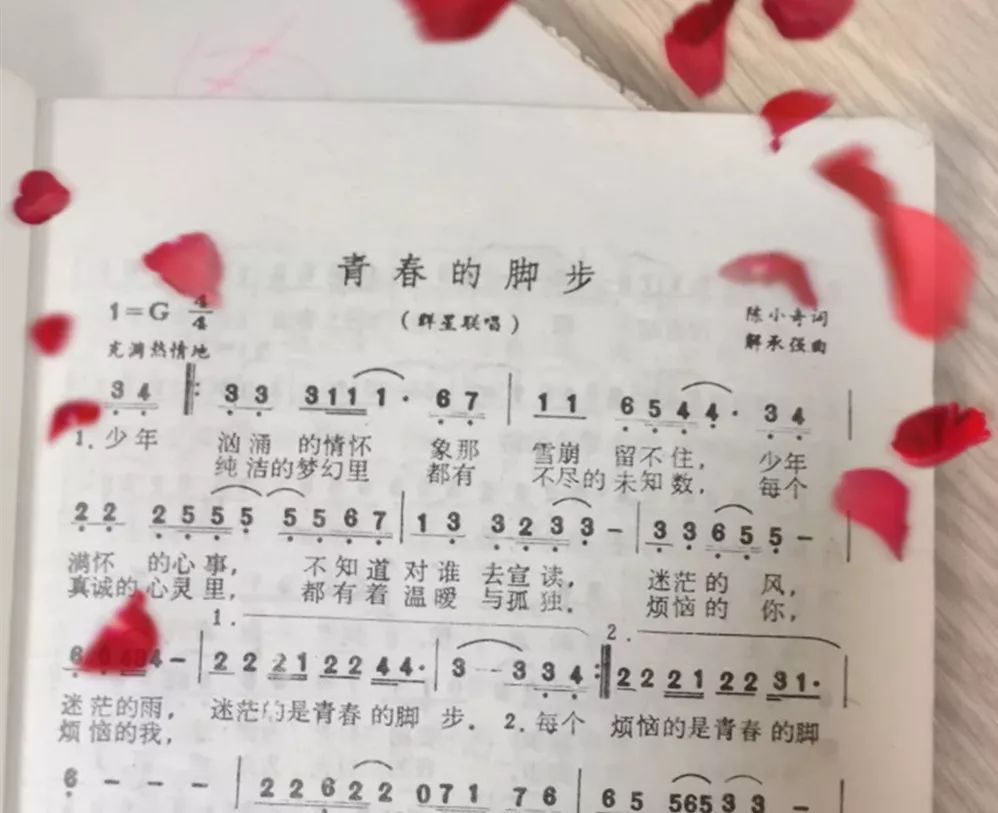 青春的脚步
1=G 4/4
(群星联唱)
陈小奇词
充满热情地
解承强曲
3 4 ‖: 3 3 3 1 1 1 · 6 7 | 1 1 6 5 4 4 · 3 4
1.少年 汹涌 的情怀 象那 雪崩 留不住, 少年
纯洁的梦幻里 都有 不尽的未知数, 每个
2 2 2 5 5 5 5 5 6 7 | 1 3 3 2 3 3 – | 3 3 6 5 5 –
满怀 的心事, 不知道对谁 去宣读, 迷茫的 风,
真诚的心灵里, 都有着温暖 与孤独. 烦恼的 你,
1. 2.
4 – | 2 2 2 1 2 2 4 4 · | 3 – – 3 3 4 :‖ 2 2 2 1 2 2 3 1 ·
迷茫的雨, 迷茫的是青春的脚 步. 2.每个 烦恼的是青春的脚
烦恼的我,
6 – – – | 2 2 6 2 2 0 7 1 7 6 | 6 5 5 6 5 3 3 –